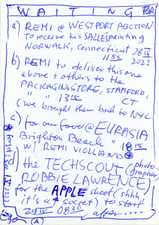 WAITING FOR
a) REMI @ WESTPORT AUCTION
to receive his SALLE painting
NORWALK, Connecticut 28 IV
1155 2022
b) REMI to deliver this one
above + others to the
PACKAGING STORE, STAMFORD,
1315 CT
(we brought them back to NYC
c) for our food @ EURASIA
Brighton Beach 18
w/ REMI VIOLLAND
the TECHSCOUT photo
ROBBIE LAWRENCE
for the APPLE shoot (shhh
it's a secret) to start
29 IV 0830 after
(A)